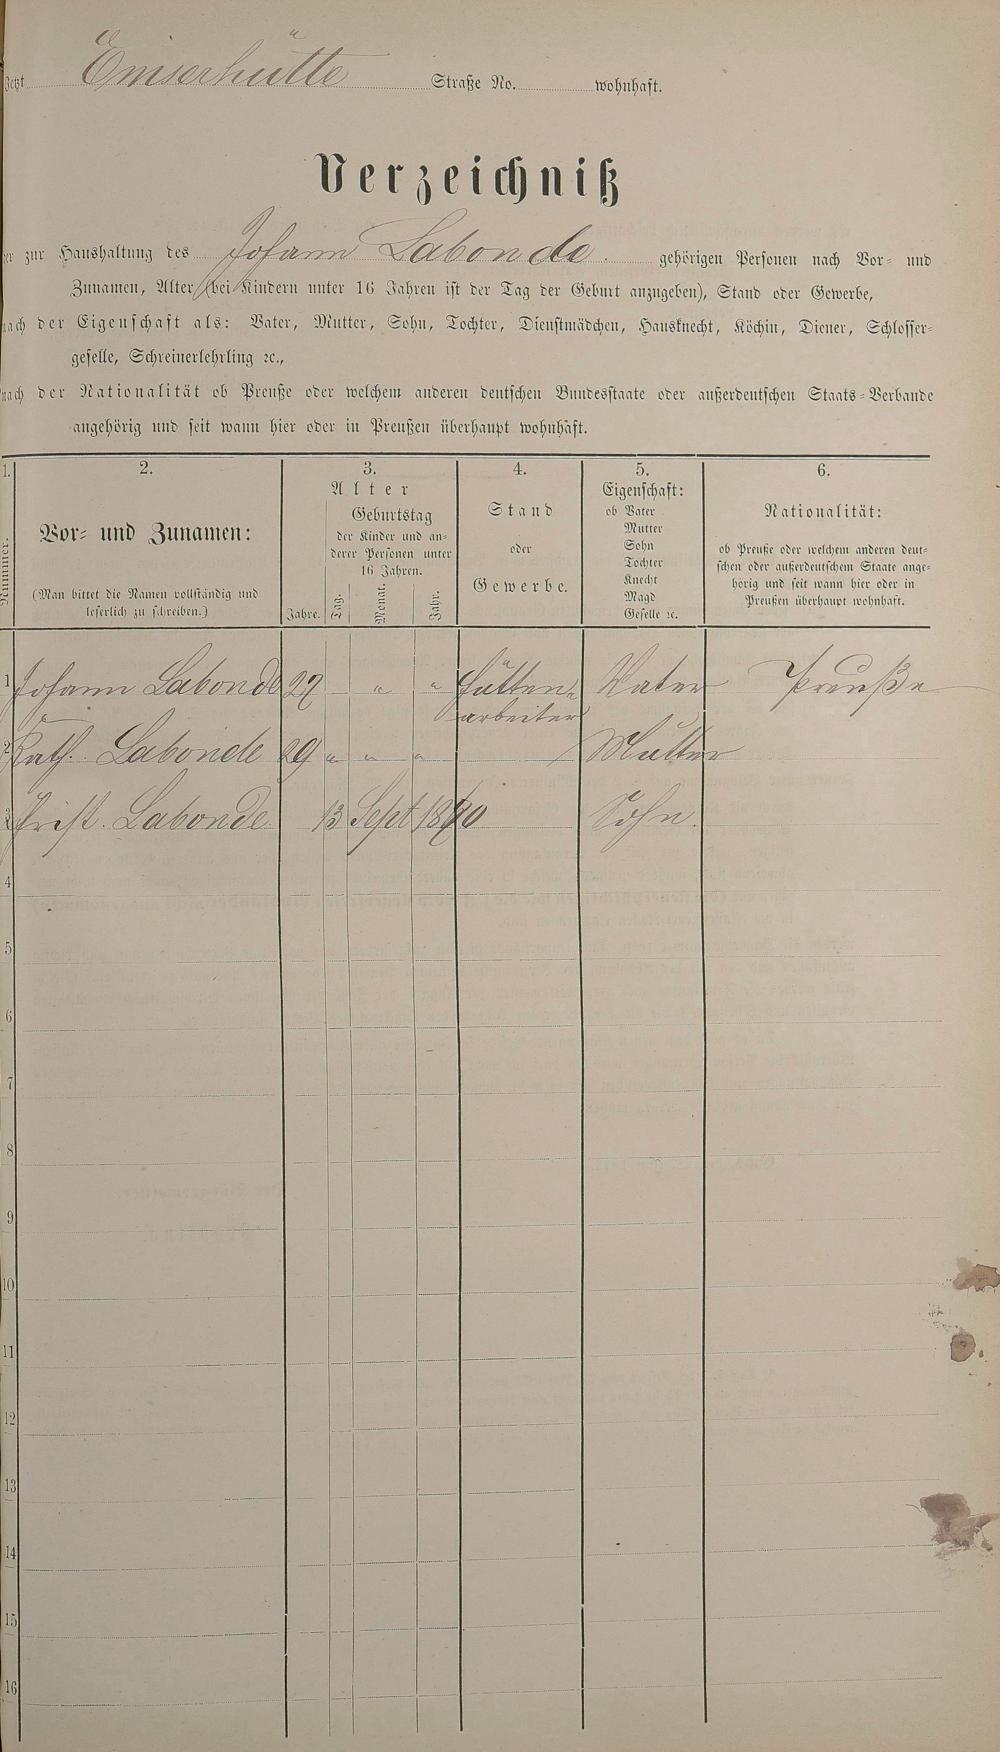 Jetzt Emserhütte Straße No. wohnhaft.
Verzeichniß
der zur Haushaltung des Johann Labonde gehörigen Personen nach Vor- und
Zunamen, Alter (bei Kindern unter 16 Jahren ist der Tag der Geburt anzugeben), Stand oder Gewerbe,
nach der Eigenschaft als: Vater, Mutter, Sohn, Tochter, Dienstmädchen, Hausknecht, Köchin, Diener, Schlosser-
geselle, Schreinerlehrling ꝛc.,
nach der Nationalität ob Preuße oder welchem anderen deutschen Bundesstaate oder außerdeutschen Staats-Verbande
angehörig und seit wann hier oder in Preußen überhaupt wohnhaft.
1.
Nummer.
2.
Vor- und Zunamen:
(Man bittet die Namen vollständig und
leserlich zu schreiben.)
3.
Alter
Jahre.
Geburtstag
der Kinder und an-
derer Personen unter
16 Jahren.
Tag.
Monat.
Jahr.
4.
Stand
oder
Gewerbe.
5.
Eigenschaft:
ob Vater
Mutter
Sohn
Tochter
Knecht
Magd
Geselle ꝛc.
6.
Nationalität:
ob Preuße oder welchem anderen deut-
schen oder außerdeutschem Staate ange-
hörig und seit wann hier oder in
Preußen überhaupt wohnhaft.
1 Johann Labonde 27 " " Hütten- Vater Preuße
arbeiter
2 Kath. Labonde 29 " " " Mutter
3 Christ. Labonde 13 Sept 1890 Sohn
4
5
6
7
8
9
10
11
12
13
14
15
16